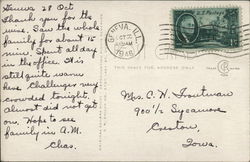 Geneva 28 Oct
Thank you for the
wire. Saw the whole
family for about 15
min. Spent all day
in the office. It is
still quite warm
here. Challenger very
crowded tonight.
Almost did not get
on. Hope to see
family in A.M.
Chas.
GENEVA, ILL.
OCT
1946
Mrs. C. W. Troutman
900½ Sycamore
Creston,
Iowa.